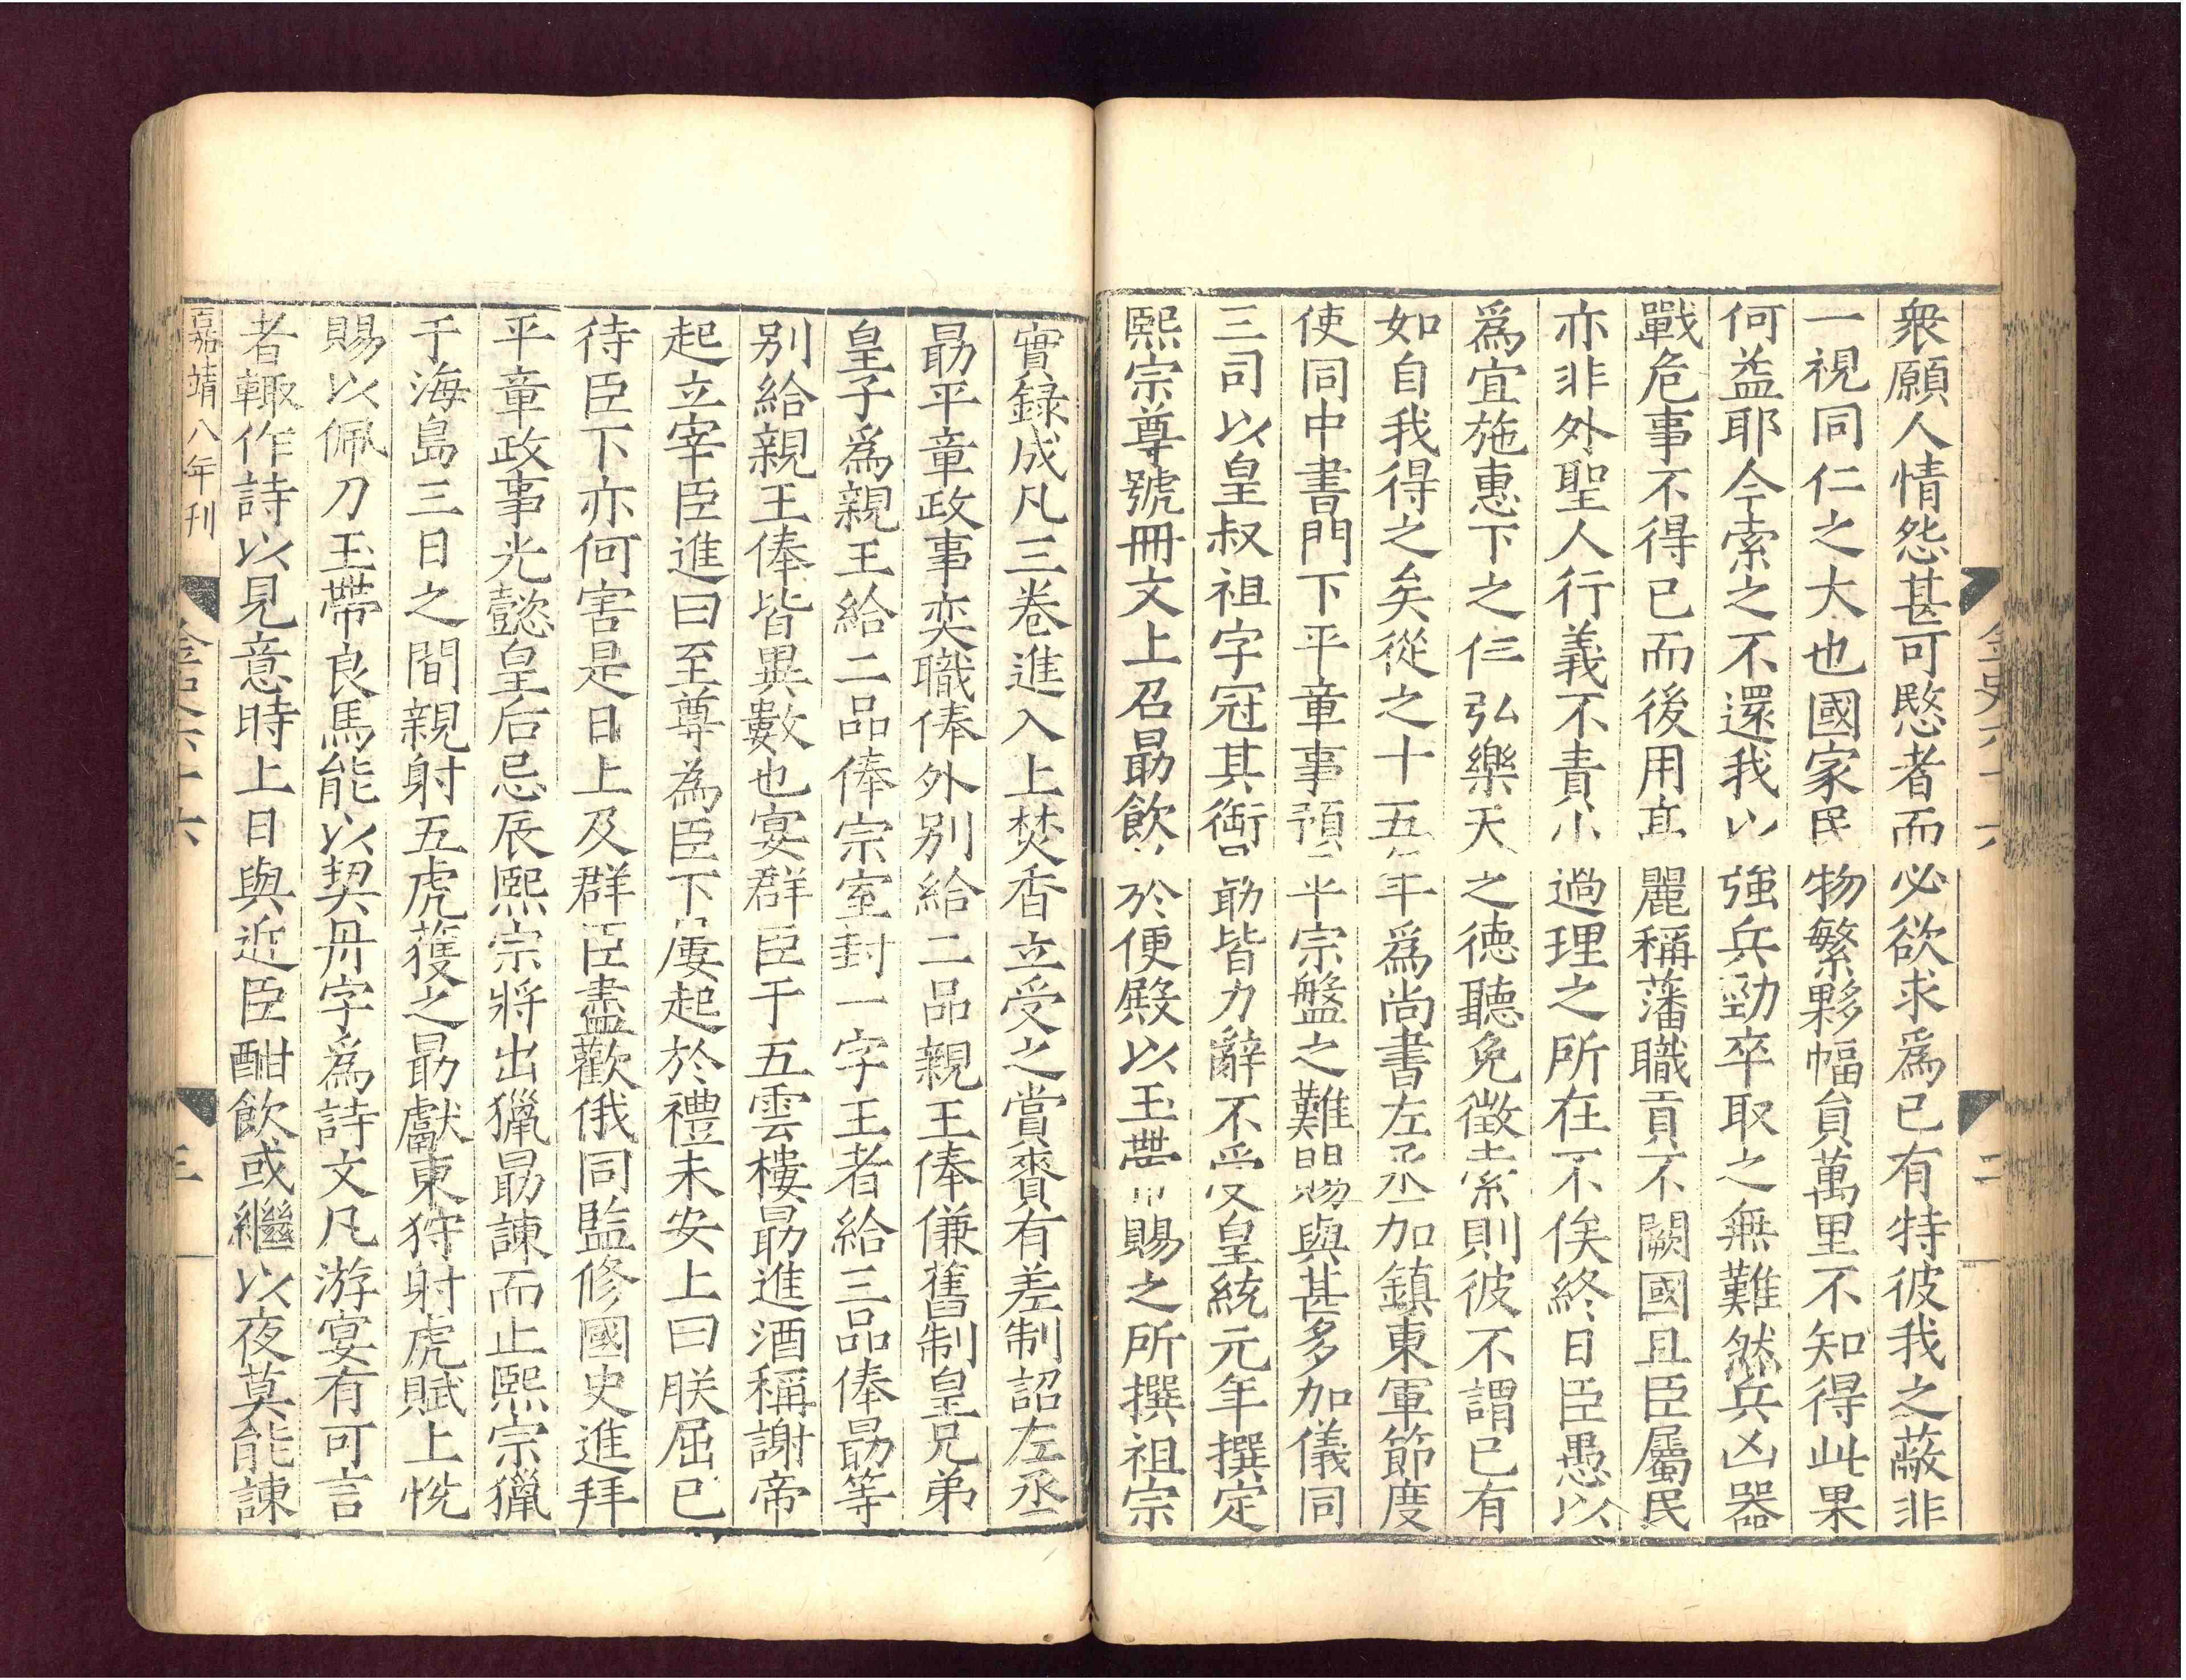 衆願人情怨甚可愍者而必欲求爲已有特彼我之蔽非
一視同仁之大也國家民物繁夥幅員萬里不知得此果
何益耶今索之不還我以強兵勁卒取之無難然兵凶器
戰危事不得已而後用高麗稱藩職貢不闕國且臣屬民
亦非外聖人行義不責小過理之所在不俟終日臣愚以
爲宜施惠下之仁弘樂天之德聽免徵索則彼不謂已有
如自我得之矣從之十五年爲尚書左丞加鎮東軍節度
使同中書門下平章事預平宗盤之難賜與甚多加儀同
三司以皇叔祖字冠其銜勗皆力辭不受皇統元年撰定
熙宗尊號冊文上召勗飲於便殿以玉帶賜之所撰祖宗
金史六十六
二
實録成凡三卷進入上焚香立受之賞賚有差制詔左丞
勗平章政事奕職俸外別給二品親王俸傔舊制皇兄弟
皇子爲親王給二品俸宗室封一字王者給三品俸勗等
别給親王俸皆異數也宴群臣于五雲樓勗進酒稱謝帝
起立宰臣進曰至尊為臣下屢起於禮未安上曰朕屈已
待臣下亦何害是日上及群臣盡歡俄同監修國史進拜
平章政事光懿皇后忌辰熙宗將出獵勗諫而止熙宗獵
于海島三日之間親射五虎獲之勗獻東狩射虎賦上悅
賜以佩刀玉帶良馬能以契丹字爲詩文凡游宴有可言
者輙作詩以見意時上日與近臣酣飲或繼以夜莫能諫
嘉靖八年刊
金史六十六
三